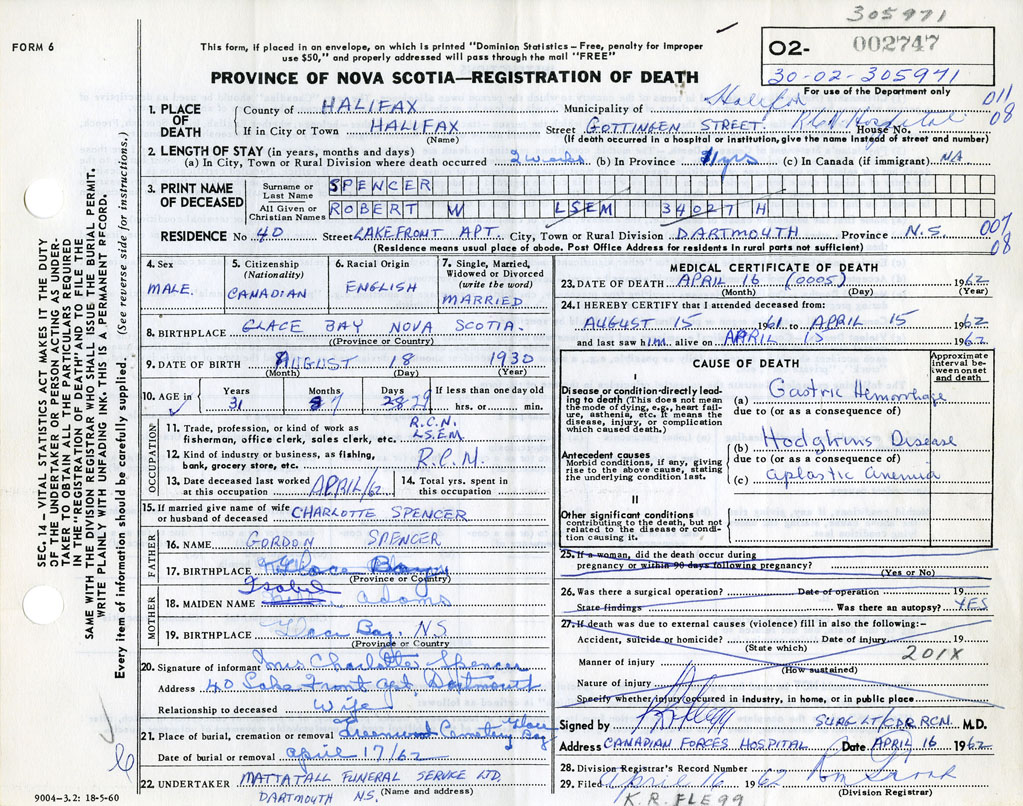 305971
FORM 6
This form, if placed in an envelope, on which is printed "Dominion Statistics – Free, penalty for improper
use $50," and properly addressed will pass through the mail "FREE"
O2- 002747
30-02-305971
For use of the Department only
PROVINCE OF NOVA SCOTIA—REGISTRATION OF DEATH
011
08
1. PLACE OF DEATH
County of HALIFAX Municipality of Halifax
If in City or Town HALIFAX Street GOTTINGEN STREET. House No. Hospital
(Name) (If death occurred in a hospital or institution, give the name instead of street and number)
2. LENGTH OF STAY (in years, months and days)
(a) In City, Town or Rural Division where death occurred 2 weeks (b) In Province 11 yrs (c) In Canada (if immigrant) NA
3. PRINT NAME OF DECEASED
Surname or Last Name SPENCER
All Given or Christian Names ROBERT W LSEM 34027 H
007
08
RESIDENCE No. 40 Street LAKEFRONT APT. City, Town or Rural Division DARTMOUTH Province N.S.
(Residence means usual place of abode. Post Office Address for residents in rural parts not sufficient)
4. Sex MALE.
5. Citizenship (Nationality) CANADIAN
6. Racial Origin ENGLISH
7. Single, Married, Widowed or Divorced (write the word) MARRIED
8. BIRTHPLACE GLACE BAY NOVA SCOTIA.
(Province or Country)
9. DATE OF BIRTH AUGUST 18 1930
(Month) (Day) (Year)
10. AGE in Years 31 Months 8 7 Days 28 29 If less than one day old hrs. or min.
OCCUPATION
11. Trade, profession, or kind of work as fisherman, office clerk, sales clerk, etc. R.C.N. LS.EM.
12. Kind of industry or business, as fishing, bank, grocery store, etc. R.C.N.
13. Date deceased last worked at this occupation APRIL/62
14. Total yrs. spent in this occupation
15. If married give name of wife or husband of deceased CHARLOTTE SPENCER
FATHER
16. NAME GORDON SPENCER
17. BIRTHPLACE Glace Bay
(Province or Country)
MOTHER
Isabel
18. MAIDEN NAME adams
19. BIRTHPLACE Glace Bay, N.S.
(Province or Country)
20. Signature of informant Mrs Charlotte Spencer
Address 40 Lake Front apt, Dartmouth
Relationship to deceased Wife
21. Place of burial, cremation or removal Greenwood Cemetery Glace Bay
Date of burial or removal april 17/62
22. UNDERTAKER MATTATALL FUNERAL SERVICE LTD,
DARTMOUTH N.S. (Name and address)
MEDICAL CERTIFICATE OF DEATH
23. DATE OF DEATH APRIL 16 (0005) 1962
(Month) (Day) (Year)
24. I HEREBY CERTIFY that I attended deceased from:
AUGUST 15 1961 to APRIL 15 1962
and last saw him alive on APRIL 15 1962
CAUSE OF DEATH
Approximate interval between onset and death
I
Disease or condition directly leading to death (This does not mean the mode of dying, e.g., heart failure, asthenia, etc. It means the disease, injury, or complication which caused death.)
(a) Gastric Hemorrhage
due to (or as a consequence of)
Antecedent causes
Morbid conditions, if any, giving rise to the above cause, stating the underlying condition last.
(b) Hodgkins Disease
due to (or as a consequence of)
(c) aplastic anemia
II
Other significant conditions
contributing to the death, but not related to the disease or condition causing it.
25. If a woman, did the death occur during
pregnancy or within 90 days following pregnancy?
(Yes or No)
26. Was there a surgical operation? Date of operation 19
State findings Was there an autopsy? YES
27. If death was due to external causes (violence) fill in also the following:-
Accident, suicide or homicide? Date of injury 19
(State which) 201X
Manner of injury
(How sustained)
Nature of injury
Specify whether injury occurred in industry, in home, or in public place
Signed by SURG LT/CDR RCN. M.D.
Address CANADIAN FORCES HOSPITAL Date APRIL 16 1962
28. Division Registrar's Record Number
29. Filed April 16 1962
(Division Registrar)
K.R. FLEGG
SEC. 14 – VITAL STATISTICS ACT MAKES IT THE DUTY
OF THE UNDERTAKER OR PERSON ACTING AS UNDER-
TAKER TO OBTAIN ALL THE PARTICULARS REQUIRED
IN THE "REGISTRATION OF DEATH" AND TO FILE THE
SAME WITH THE DIVISION REGISTRAR WHO SHALL ISSUE THE BURIAL PERMIT.
WRITE PLAINLY WITH UNFADING INK. THIS IS A PERMANENT RECORD.
Every item of information should be carefully supplied. (See reverse side for instructions.)
9004-3.2: 18-5-60